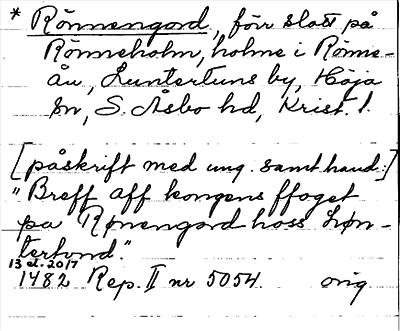 * Rönnengard, förr slott på
Rönneholm, holme i Rönne-
ån, Luntertuns by, Höja
sn, S. Åsbo hd, Krist. l.
[påskrift med ung. samt hand:]
"Breff aff kongens ffoget
pa Rønengard hoss Løn-
tertond."
13 el. 20/7
1482 Rep. II nr 5054. orig